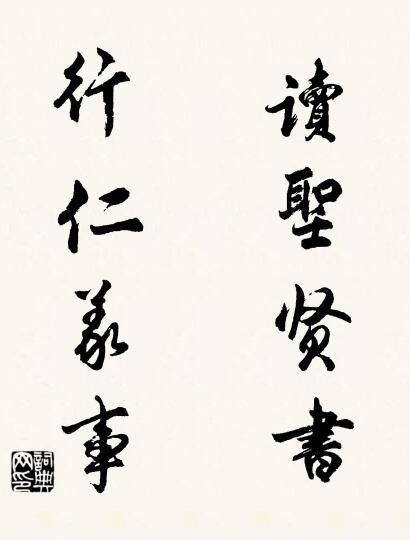 讀聖贤書
行仁義事
詞典网印